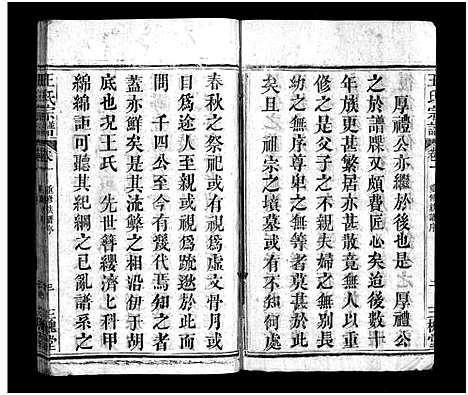 厚禮公亦繼於後也是厚禮公
之於譜牒又頗費匠心矣迨後數十
年更甚繁居亦甚散竟無人以重
修之是年父子之不親夫婦之無別長
幼之無序尊卑之無等者莫甚於此
矣且祖宗之墳墓或有不知何處
春秋之祭祀或視為虛文骨月或
目為途人至親或視為疏逖於斯
間千四公至今有幾代焉知之者
蓋亦鮮矣是其流弊之相沿伊于胡
底也况王氏先世簪纓濟上科甲
綿綿詎可聽其紀綱之已亂譜系之
王氏宗譜
卷一
重修族譜序
三槐堂